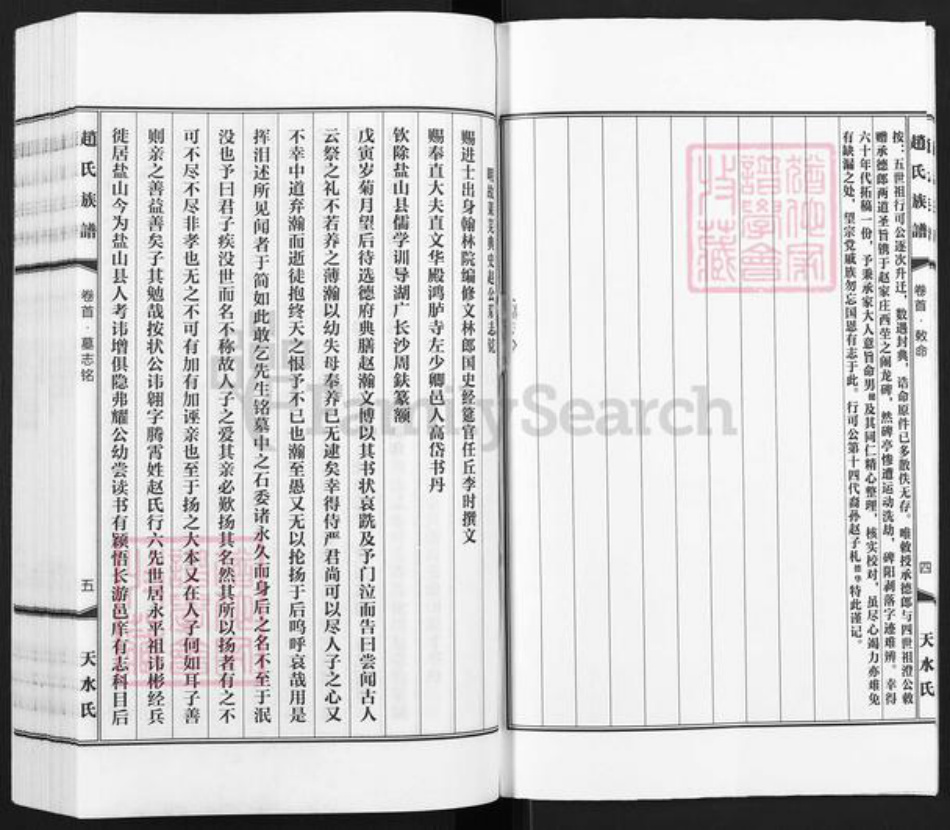 趙氏族譜
卷首·敕命
四
天水氏
按：五世祖行可公逐次升迁，数遇封典，诰命原件已多散佚无存。唯敕授承德郎与四世祖澄公敕
赠承德郎两道圣旨镌于赵家庄西茔之阁龙碑，然碑亭惨遭运动洗劫，碑阳剥落字迹难辨。幸得
六十年代拓稿一份，予秉承家大人意旨命男及其同仁精心整理，核实校对，虽尽心竭力亦难免
有缺漏之处，望宗党戚族勿忘国恩有志于此。行可公第十四代裔孙赵子札德华特此谨记。
明故
赵公墓志铭
赐进士出身翰林院编修文林郎国史经筵官任丘李时撰文
赐奉直大夫直文华殿鸿胪寺左少卿邑人高岱书丹
钦除盐山县儒学训导湖广长沙周鈇篆额
戊寅岁菊月望后待选德府典膳赵瀚文博以其书状哀跣及予门泣而告曰尝闻古人
云祭之礼不若养之薄瀚以幼失母奉养已无逮矣幸得侍严君尚可以尽人子之心又
不幸中道弃瀚而逝徒抱终天之恨予不已也瀚至愚又无以抡扬于后呜呼哀哉用是
挥泪述所见闻者于简如此敢乞先生铭墓中之石委诸永久而身后之名不至于泯
没也予曰君子疾没世而名不称故人子之爱其亲必欺扬其名然其所以扬者有之不
可不尽不尽非孝也无之不可有加有加诬亲也至于扬之大本又在人子何如耳子善
则亲之善益善矣子其勉哉按状公讳翱字腾霄姓赵氏行六先世居永平祖讳彬经兵
徙居盐山今为盐山县人考讳增俱隐弗耀公幼尝读书有颖悟长游邑庠有志科目后
趙氏族譜
卷首·墓志铭
五
天水氏
FamilySearch